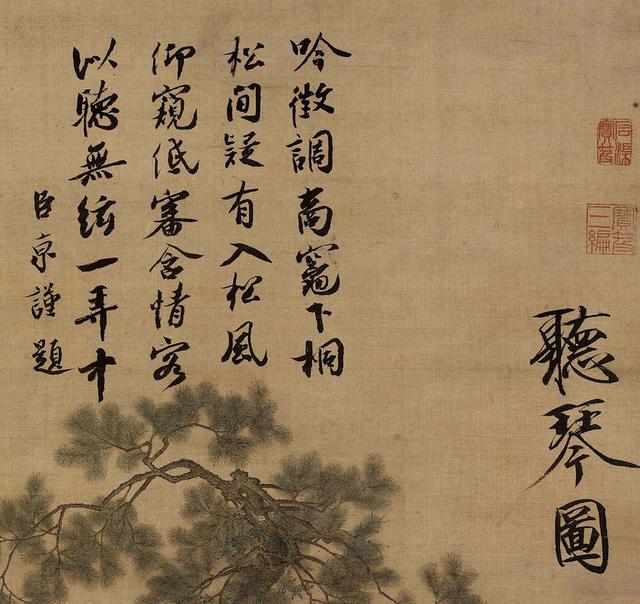 石渠寶笈
寶笈三編
聽琴圖
吟徵調商竈下桐
松間疑有入松風
仰窺低審含情客
似聽無絃一弄中
臣京謹題